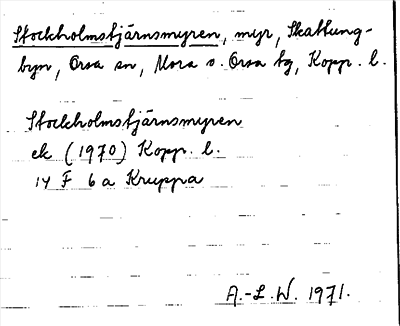 Stockholmstjärnsmyren, myr, Skattung-
byn, Orsa sn, Mora o. Orsa tg, Kopp. l.
Stockholmstjärnsmyren
ek (1970) Kopp. l.
14 F 6 a Kruppa
A.-L. W. 1971.